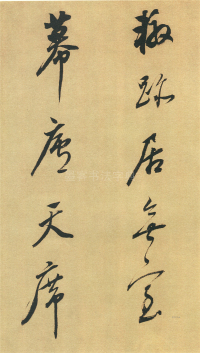 轍跡居無室
幕廬天席